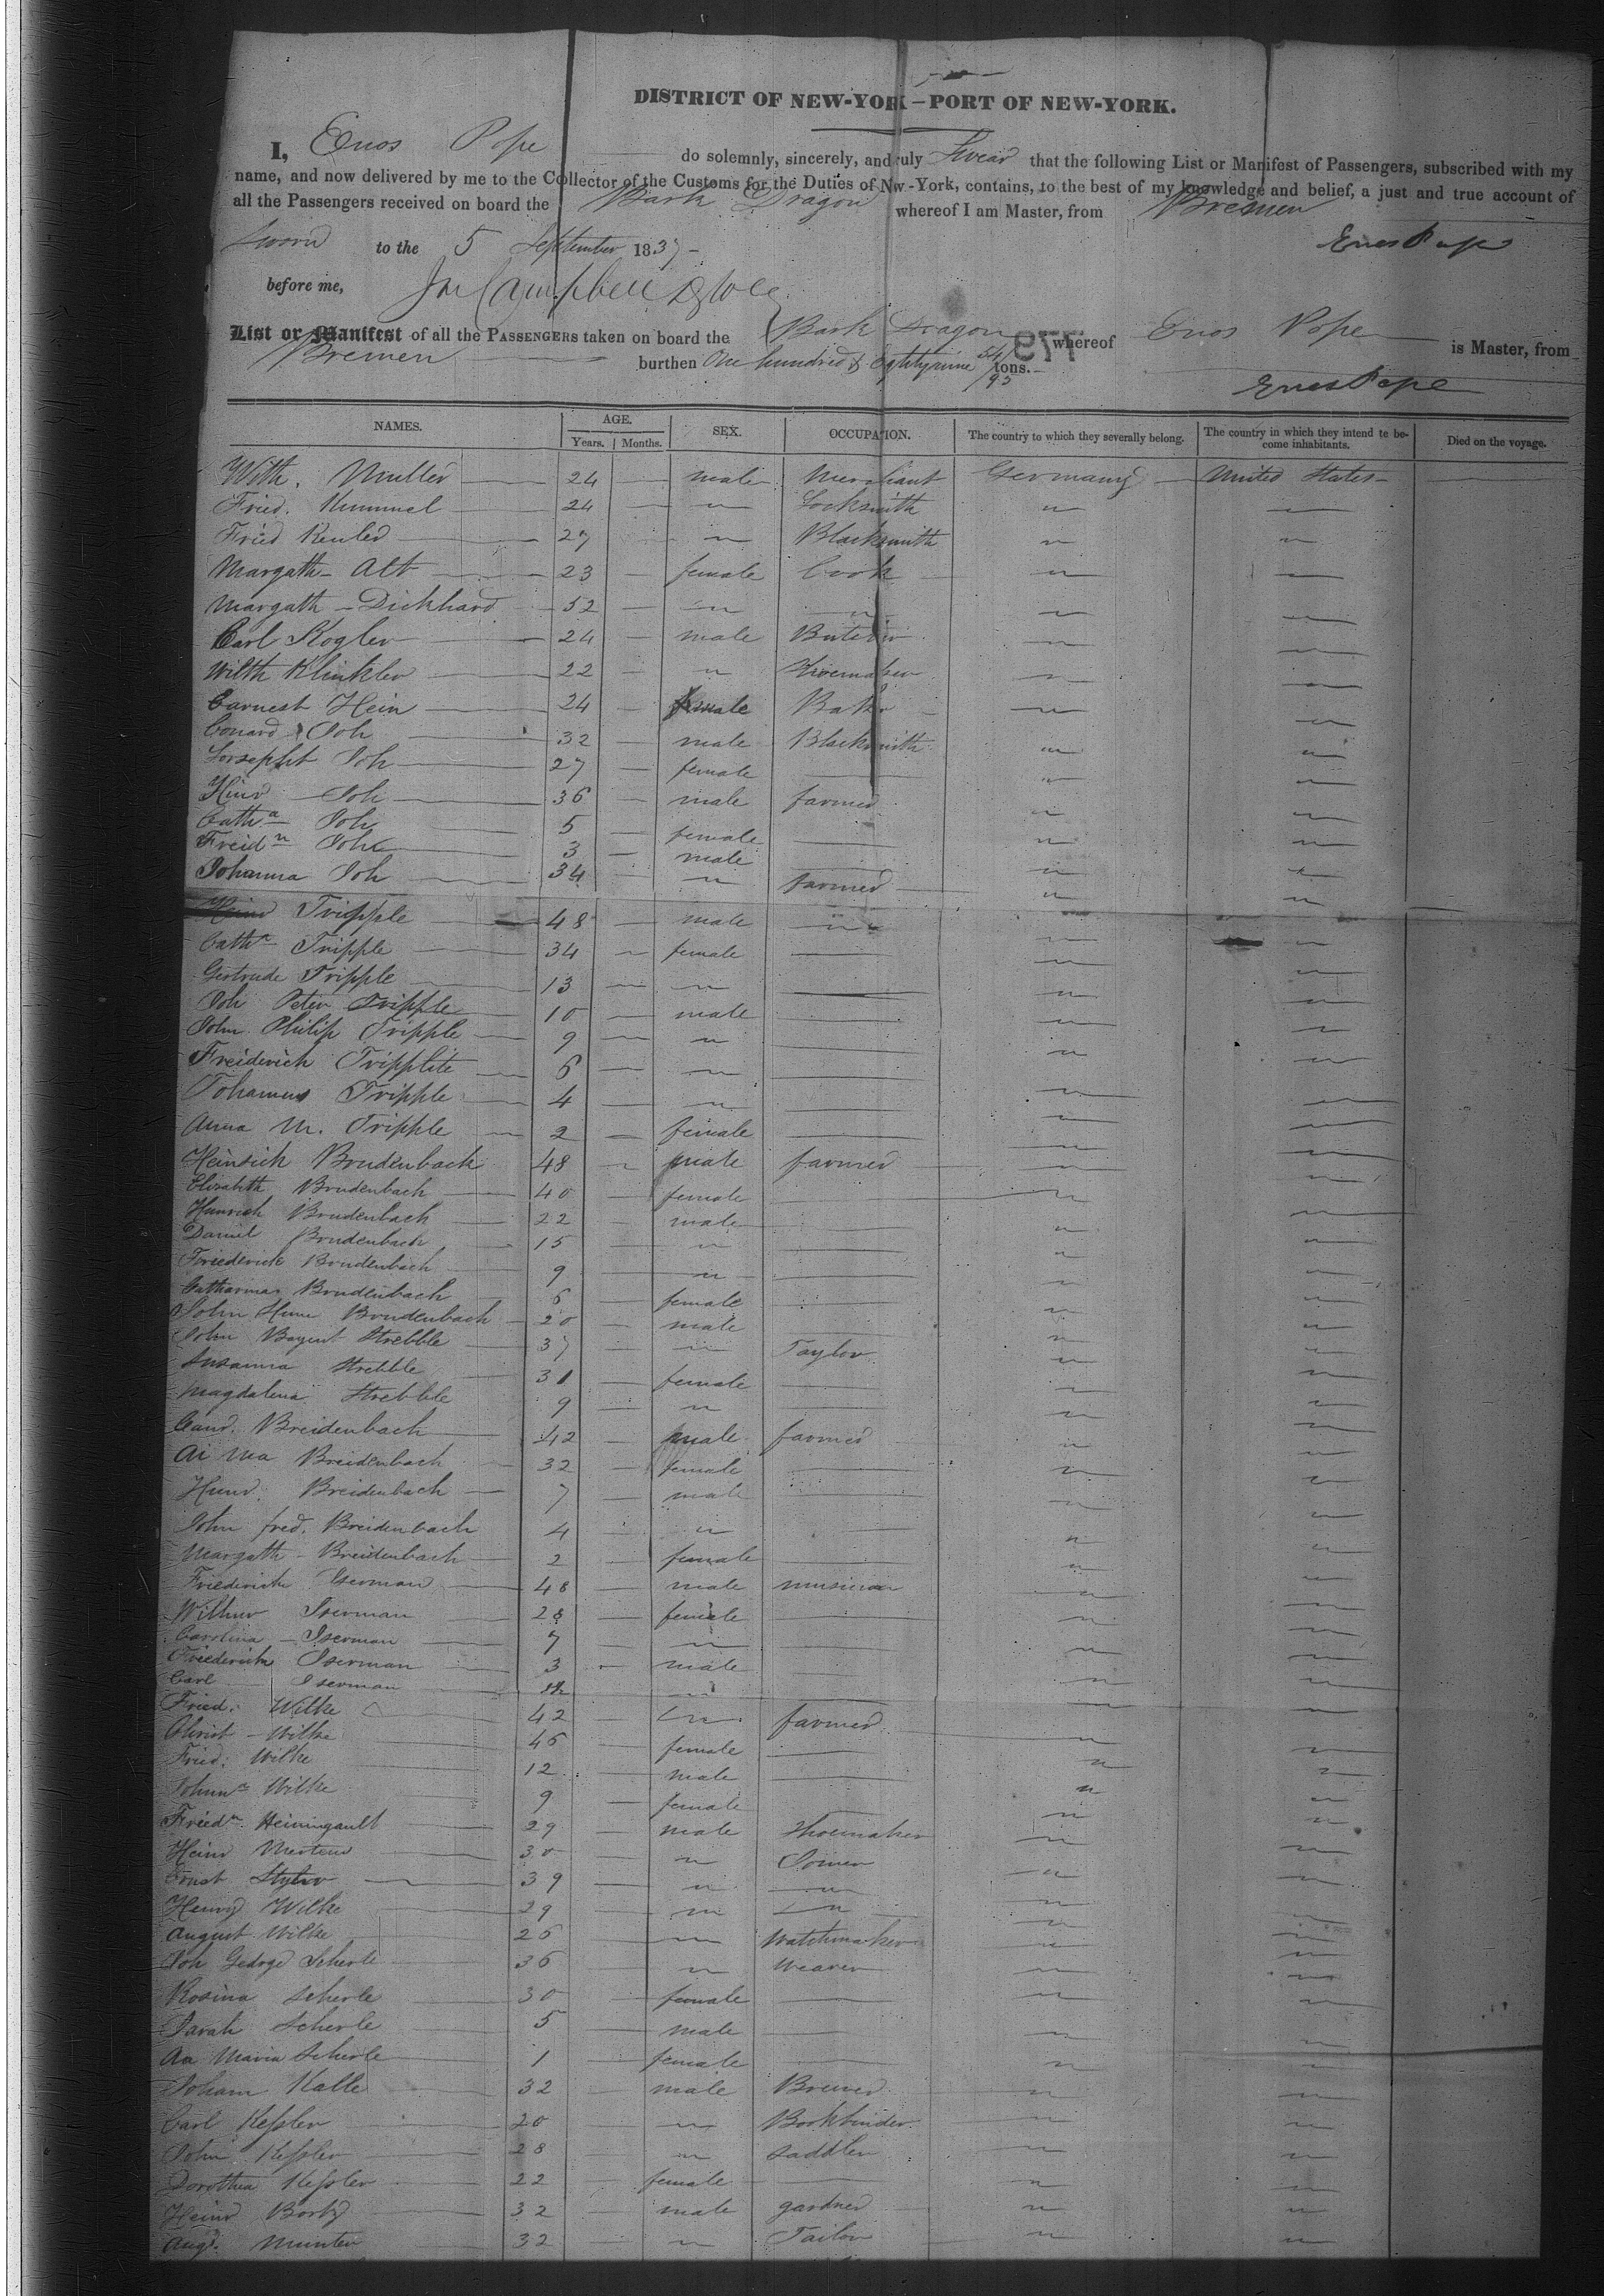 DISTRICT OF NEW-YORK - PORT OF NEW-YORK.
I, Enos Pope do solemnly, sincerely, and truly Swear that the following List or Manifest of Passengers, subscribed with my
name, and now delivered by me to the Collector of the Customs for the Duties of New-York, contains, to the best of my knowledge and belief, a just and true account of
all the Passengers received on board the Bark Dragon whereof I am Master, from Bremen
Sworn to the 5 September 1837 Enos Pope
before me, Campbell
List or Manifest of all the PASSENGERS taken on board the Bark Dragon whereof Enos Pope is Master, from
Bremen burthen One hundred & Eightynine 54/95 tons. 779
Enos Pope
NAMES. AGE. SEX. OCCUPATION. The country to which they severally belong. The country in which they intend to become inhabitants. Died on the voyage.
Years. Months.
Wilh. Muller 24 male Merchant Germany United States
Fried. Kummel 24 " Locksmith " "
Fried Keuler 27 " Blacksmith " "
Margath Alt 23 female Cook " "
Margath Dickhard 52 " " " "
Carl Kogler 24 male Butcher " "
Wilth Klinkler 22 " Shoemaker " "
Earnest Hein 24 female Baker " "
Conard Joh 32 male Blacksmith " "
Joh 27 female " "
Heinr Joh 36 male farmer " "
Catha Joh 5 female " "
Freidn Joh 3 male " "
Johanna Joh 34 " farmer " "
Heinr Tripple 48 male " " "
Catha Tripple 34 female " "
Gertrude Tripple 13 " " "
Joh Peter Tripple 10 male " "
John Philip Tripple 9 " " "
Freiderich Tripplite 6 " " "
Johannes Tripple 4 " " "
Anna M. Tripple 2 female " "
Heinrich Brudenbach 48 male farmer " "
Elizabeth Brudenbach 40 female " "
Heinrich Brudenbach 22 male " "
Daniel Brudenbach 15 " " "
Friederich Brudenbach 9 " " "
Catharina Brudenbach 6 female " "
John Brudenbach 20 male " "
John Strebble 37 " Taylor " "
Susanna Strebble 31 female " "
Magdalena Strebble 9 " " "
Breidenbach 42 male farmer " "
Breidenbach 32 female " "
Heinr. Breidenbach 7 male " "
John fred. Breidenbach 4 " " "
Margath Breidenbach 2 female " "
Friederich Iserman 48 male musician " "
Iserman 28 female " "
Carolina Iserman 7 " " "
Friederich Iserman 3 male " "
Carl Iserman " " "
Fried. Wilke 42 " farmer " "
Christ Wilke 46 female " "
Fried. Wilke 12 male " "
Wilke 9 female " "
Friedn Heiningault 29 male Shoemaker " "
Heinr Mertens 30 " Joiner " "
Ernst 39 " " " "
Henry Wilke 29 " " " "
August Wilke 26 " Watchmaker " "
Joh George Scherle 36 " Weaver " "
Rosina Scherle 30 female " "
Sarah Scherle 5 male " "
An Maria Scherle 1 female " "
Joham Kalle 32 male Brewer " "
Carl Kessler 20 " Bookbinder " "
John Kessler 28 " Saddler " "
Dorothea Kessler 22 female " "
Heinr 32 male gardner " "
Augt. Munter 32 " Tailor " "